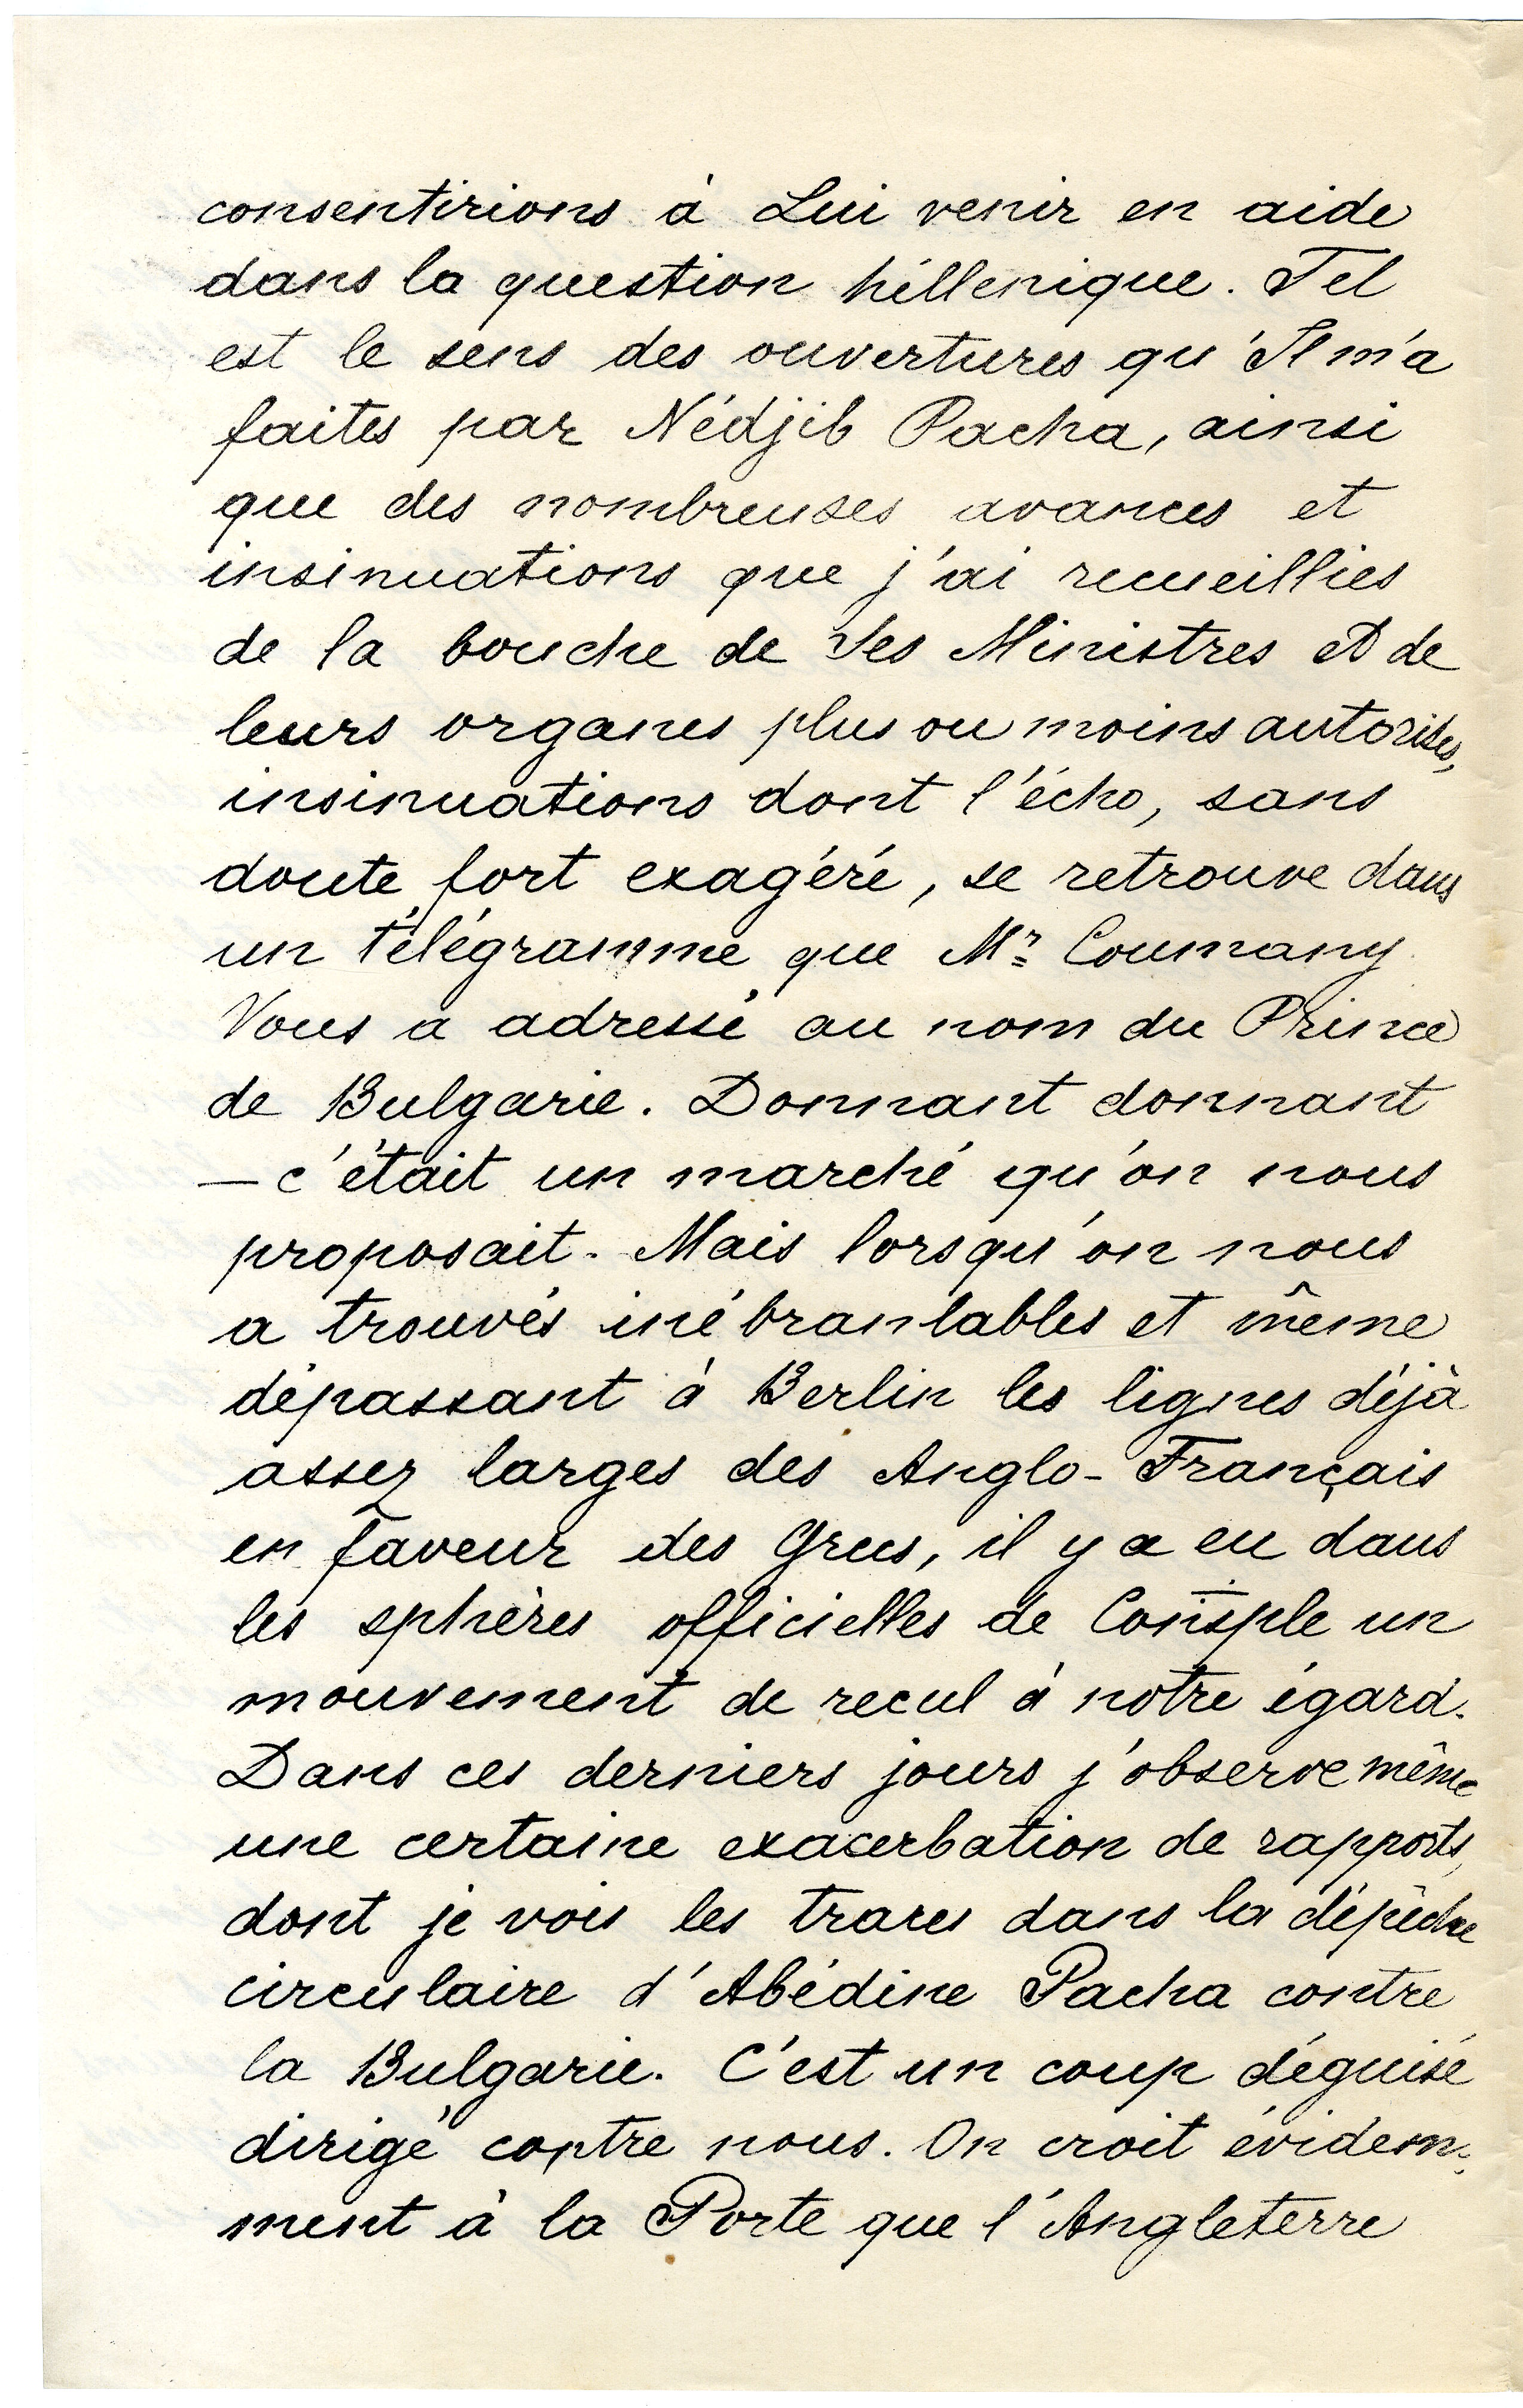 consentirions à Lui venir en aide
dans la question héllenique. Tel
est le sens des ouvertures qu'Il m'a
faites par Nédjib Pacha, ainsi
que des nombreuses avances et
insinuations que j'ai recueillies
de la bouche de Ses Ministres et de
leurs organes plus ou moins autorisés,
insinuations dont l'écho, sans
doute fort exagéré, se retrouve dans
un télégramme que Mr Coumany
Vous a adressé au nom du Prince
de Bulgarie. Donnant donnant
— c'était un marché qu'on nous
proposait. Mais lorsqu'on nous
a trouvés inébranlables et même
dépassant à Berlin les lignes déjà
assez larges des Anglo-Français
en faveur des Grecs, il y a eu dans
les sphères officielles de Consple un
mouvement de recul à notre égard.
Dans ces derniers jours j'observe même
une certaine exacerbation de rapports,
dont je vois les traces dans la dépêche
circulaire d'Abédine Pacha contre
la Bulgarie. C'est un coup déguisé
dirigé contre nous. On croit évidem-
ment à la Porte que l'Angleterre